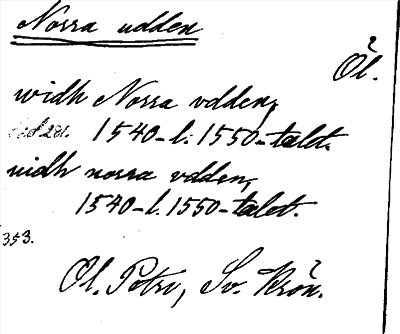 Norra udden
Öl.
widh Norra vdden,
sid 281. 1540-l. 1550-talet.
widh norra vdden,
1540-l. 1550-talet.
353.
Ol. Petri, Sv. Krön.